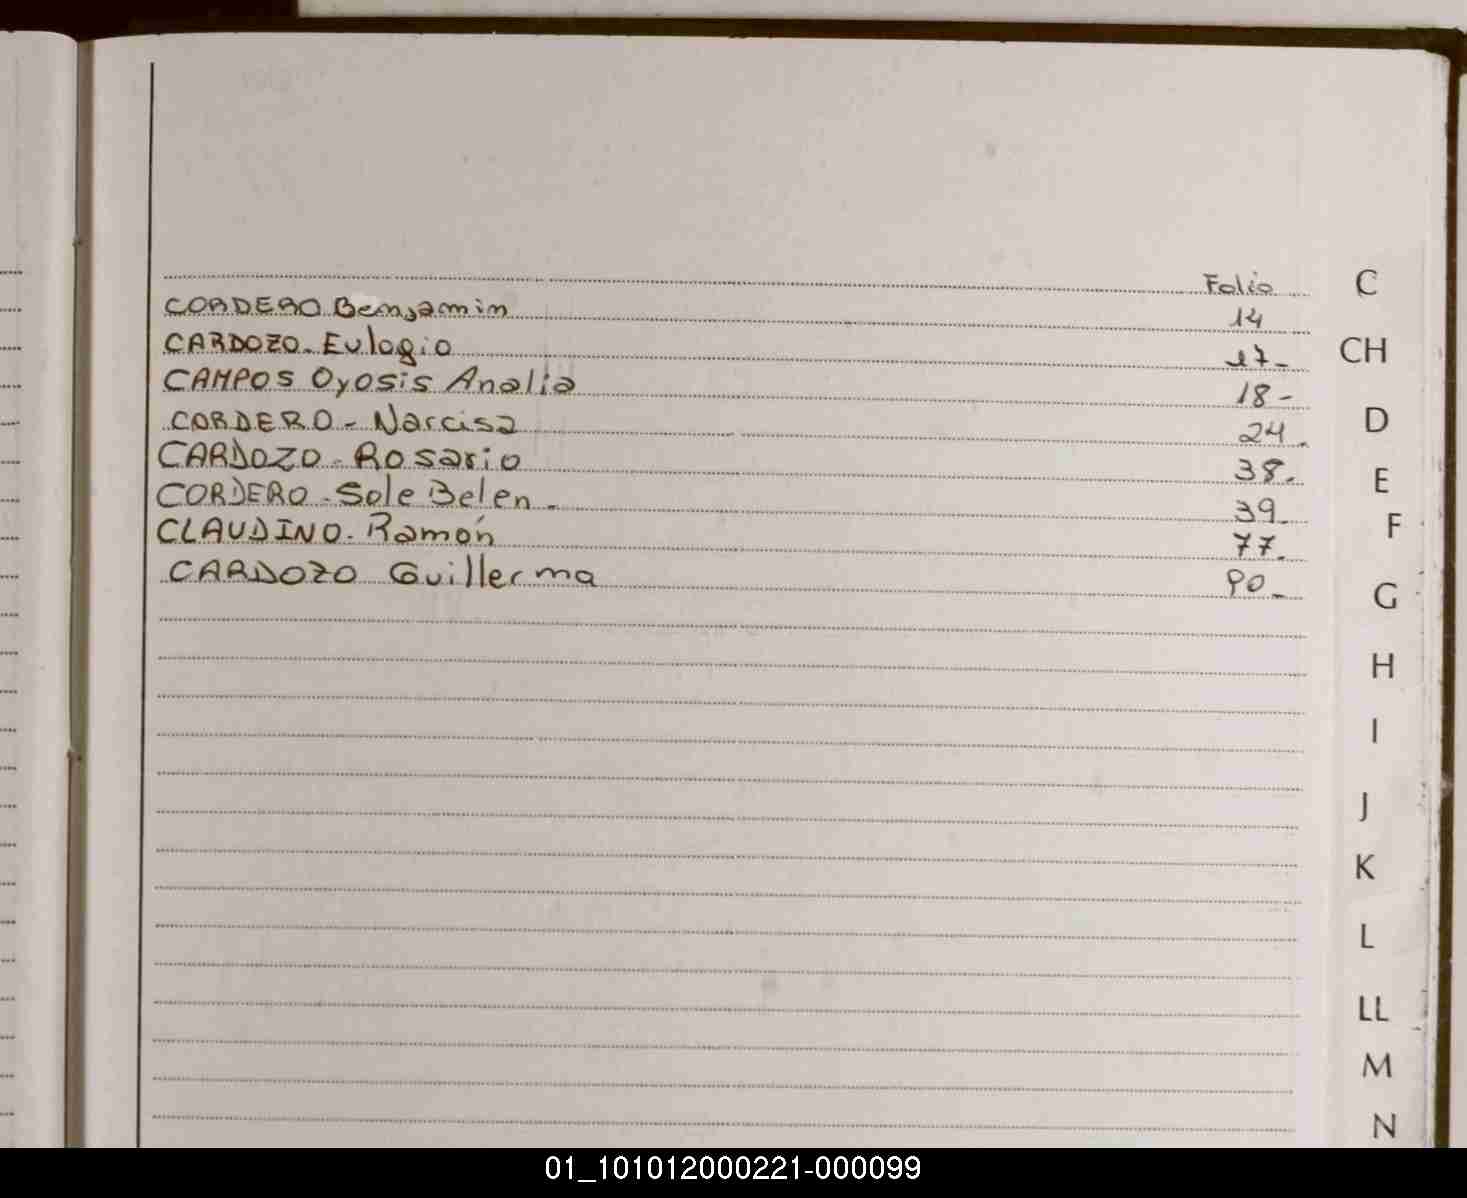 Folio
CORDERO Benjamin 14
CARDOZO - Eulogio 17 -
CAMPOS Oyosis Analia 18 -
CORDERO - Narcisa 24 -
CARDOZO - Rosario 38 -
CORDERO - Sole Belen - 39 -
CLAUDINO - Ramón 77 -
CARDOZO Guillerma 90 -
C
CH
D
E
F
G
H
I
J
K
L
LL
M
N
01_101012000221-000099